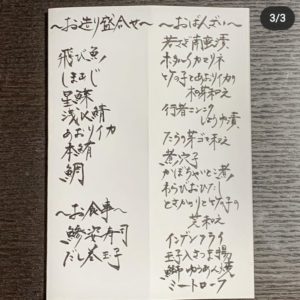 3/3
〜お造り盛合せ〜
飛び魚
しまあじ
星鰈
浅〆鯖
あおりイカ
本鮪
鯛
〜お食事〜
鯵姿寿司
だし巻玉子
〜おばんざい〜
若さぎ南蛮漬
ホタルイカマリネ
竹の子とあおりイカの
木の芽和え
行者ニンニク
しょうゆ漬
たらの芽ゴマ和え
煮穴子
かぼちゃいとこ煮
わらびおひたし
とさかのりと竹の子の
芝和え
インゲンフライ
玉子入さつま揚
ゆうあん焼
ミートローフ